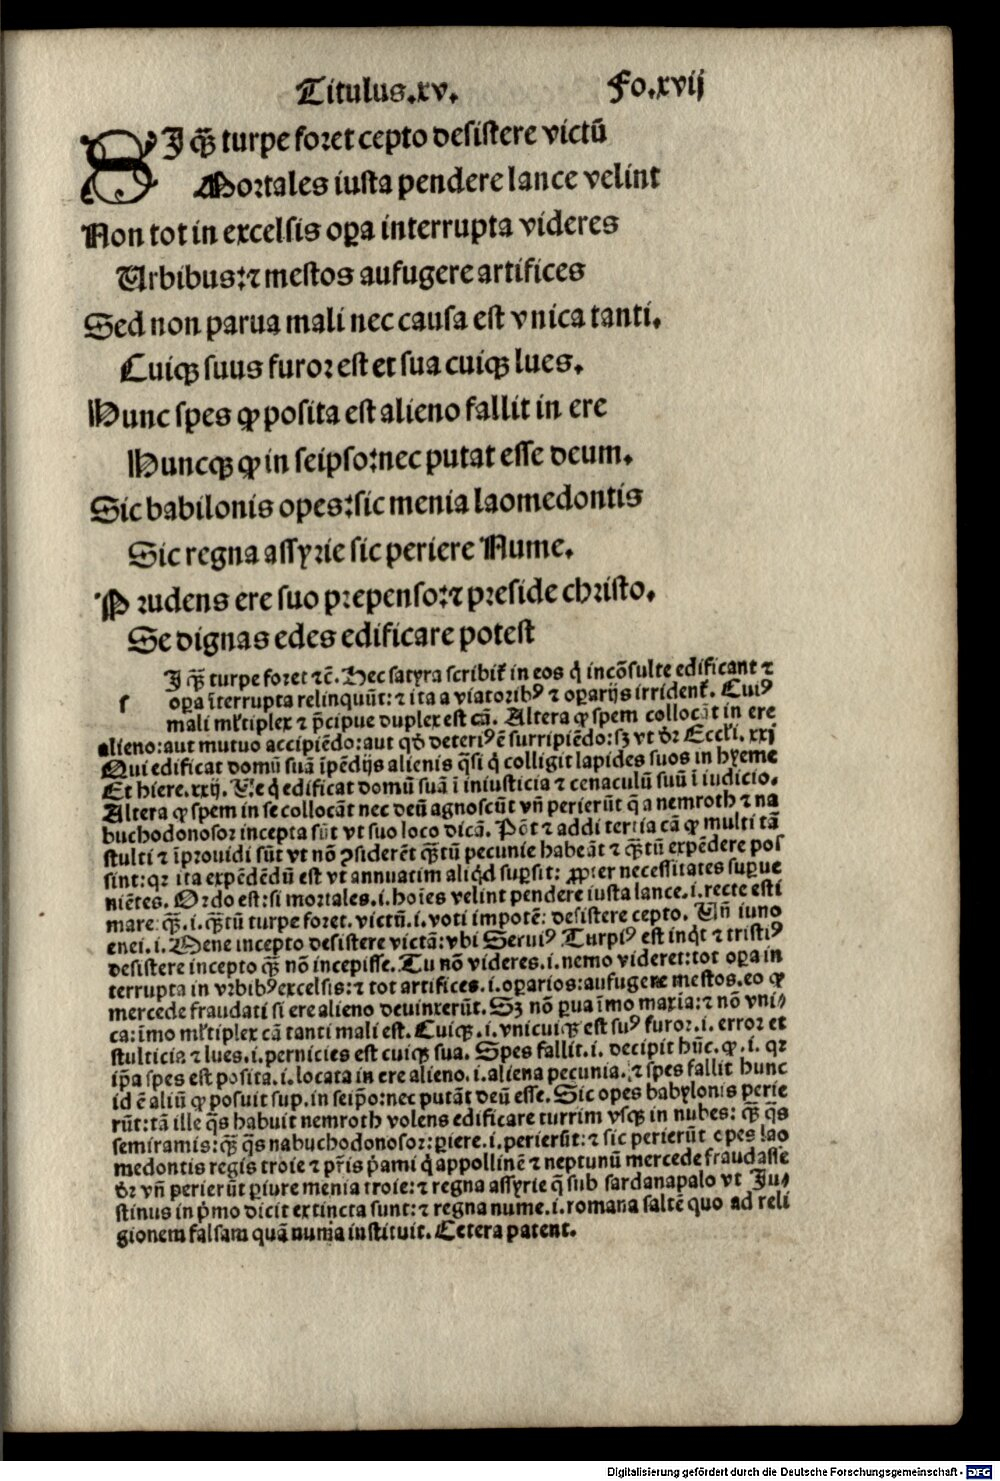 Titulus.xv. Fo.xvij
SI q̃ꝫ turpe foret cepto desistere victũ
Mortales iusta pendere lance velint
Non tot in excelsis oꝑa interrupta videres
Urbibus:⁊ mestos aufugere artifices
Sed non parua mali nec causa est vnica tanti.
Cuiqꝫ suus furor est et sua cuiqꝫ lues.
Hunc spes ꝙ posita est alieno fallit in ere
Huncqꝫ ꝙ in seipso:nec putat esse deum.
Sic babilonis opes:sic menia laomedontis
Sic regna assyrie sic periere Nume.
Prudens ere suo prepenso:⁊ preside christo.
Se dignas edes edificare potest
I q̃ꝫ turpe foret ⁊c̃. Hec satyra scribit᷑ in eos q̇ incõsulte edificant ⁊
s oꝑa ĩterrupta relinquũt:⁊ ita a viatoribꝰ ⁊ oꝑarijs irrident᷑. Cuiꝰ
mali mĺtiplex ⁊ p̃cipue duplex est cã. Altera ꝙ spem collocãt in ere
alieno:aut mutuo accipiẽdo:aut qḋ deteriꝰ ẽ surripiẽdo:sꝫ vt dr̃ Eccĺi. xxj
Qui edificat domũ suã ĩpẽdijs alienis q̃si q̇ colligit lapides suos in hyeme
Et hiere.xxij. Ve q̇ edificat domũ suã ĩ iniusticia ⁊ cenaculũ suũ ĩ iudicio.
Altera ꝙ spem in se collocãt nec deũ agnoscũt vñ perierũt q̃ a nemroth ⁊ na
buchodonosor incepta sũt vt suo loco dicã. Põt ⁊ addi tertia cã ꝙ multi tã
stulti ⁊ ĩprouidi sũt vt nõ ꝯsiderẽt q̃ꝫtũ pecunie habeãt ⁊ q̃ꝫtũ expẽdere pos
sint:qꝛ ita expẽdẽdũ est vt annuatim aliq̇d suꝑsit: ꝓpter necessitates suꝑue
niẽtes. Ordo est:si mortales.i.hoĩes velint pendere iusta lance.i.recte esti
mare q̃ꝫ.i.q̃ꝫtũ turpe foret. victũ.i.voti impotẽ: desistere cepto. Vñ iuno
enei.i.Mene incepto desistere victã:vbi Seruiꝰ Turpiꝰ est inq̇t ⁊ tristiꝰ
desistere incepto q̃ꝫ nõ incepisse. Tu nõ videres.i.nemo videret:tot oꝑa in
terrupta in vrbibꝰ excelsis:⁊ tot artifices.i.oꝑarios:aufugere mestos.eo ꝙ
mercede fraudati si ere alieno deuinxerũt. Sꝫ nõ ꝑua ĩmo maxia:⁊ nõ vni⸗
ca:ĩmo mĺtiplex cã tanti mali est. Cuiqꝫ.i.vnicuiqꝫ est suꝰ furor.i.error et
stulticia ⁊ lues.i.pernicies est cuiqꝫ sua. Spes fallit.i. decipit hũc.ꝙ.i. qꝛ
ip̃a spes est posita.i.locata in ere alieno.i.aliena pecunia.:⁊ spes fallit hunc
id ẽ aliũ ꝙ posuit sup.in seip̃o:nec putãt deũ esse. Sic opes babylonis perie
rũt:tã ille q̃s habuit nemroth volens edificare turrim vsqꝫ in nubes: q̃ꝫ q̃s
semiramis:q̃ꝫ q̃s nabuchodonosor:ꝑiere.i.perierũt:⁊ sic perierũt opes lao
medontis regis troie ⁊ pr̃is p̃ami q̇ appollinẽ ⁊ neptunũ mercede fraudasse
dr̃ vñ perierũt ꝑiure menia troie:⁊ regna assyrie q̃ sub sardanapalo vt Ju⸗
stinus in p̃mo dicit extincta sunt:⁊ regna nume.i.romana saltẽ quo ad reli
gionem falsam quã numa instituit. Cetera patent.
Digitalisierung gefördert durch die Deutsche Forschungsgemeinschaft - DFG